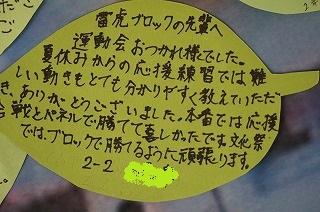 雷虎ブロックの先輩へ
運動会おつかれ様でした。
夏休みからの応援練習では難
しい動きもとても分かりやすく教えていただ
き、ありがとうございました。本番では応援
合戦とパネルで勝てて嬉しかったです。文化祭
では、ブロックで勝てるように頑張ります。
2-2